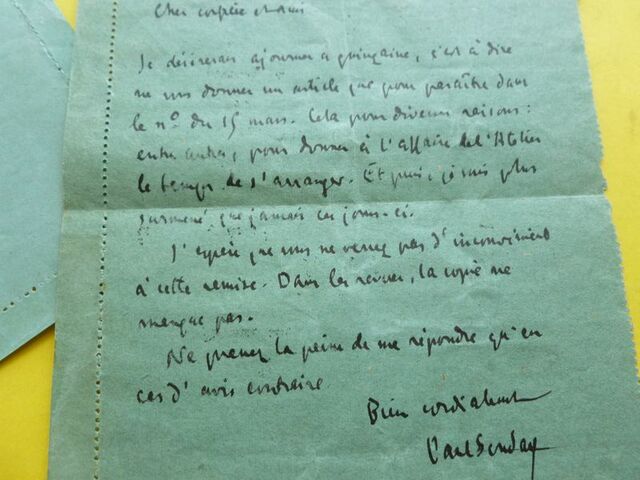 Cher confrère et ami
Je désirerais ajourner à quinzaine, c'est à dire
ne vous donner un article que pour paraître dans
le n° du 15 mars. Cela pour diverses raisons :
entre autres, pour donner à l'affaire de l'Atelier
le temps de s'arranger. Et puis, je suis plus
surmené que jamais ces jours-ci.
J'espère que vous ne verrez pas d'inconvénient
à cette remise. Dans les revues, la copie ne
manque pas.
Ne prenez la peine de me répondre qu'en
cas d'avis contraire
Bien cordialement
Paul Souday